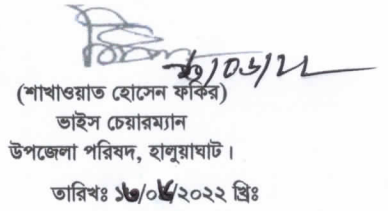 (শাখাওয়াত হোসেন ফকির)
ভাইস চেয়ারম্যান
উপজেলা পরিষদ, হালুয়াঘাট।
তারিখঃ /২০২২ খ্রিঃ